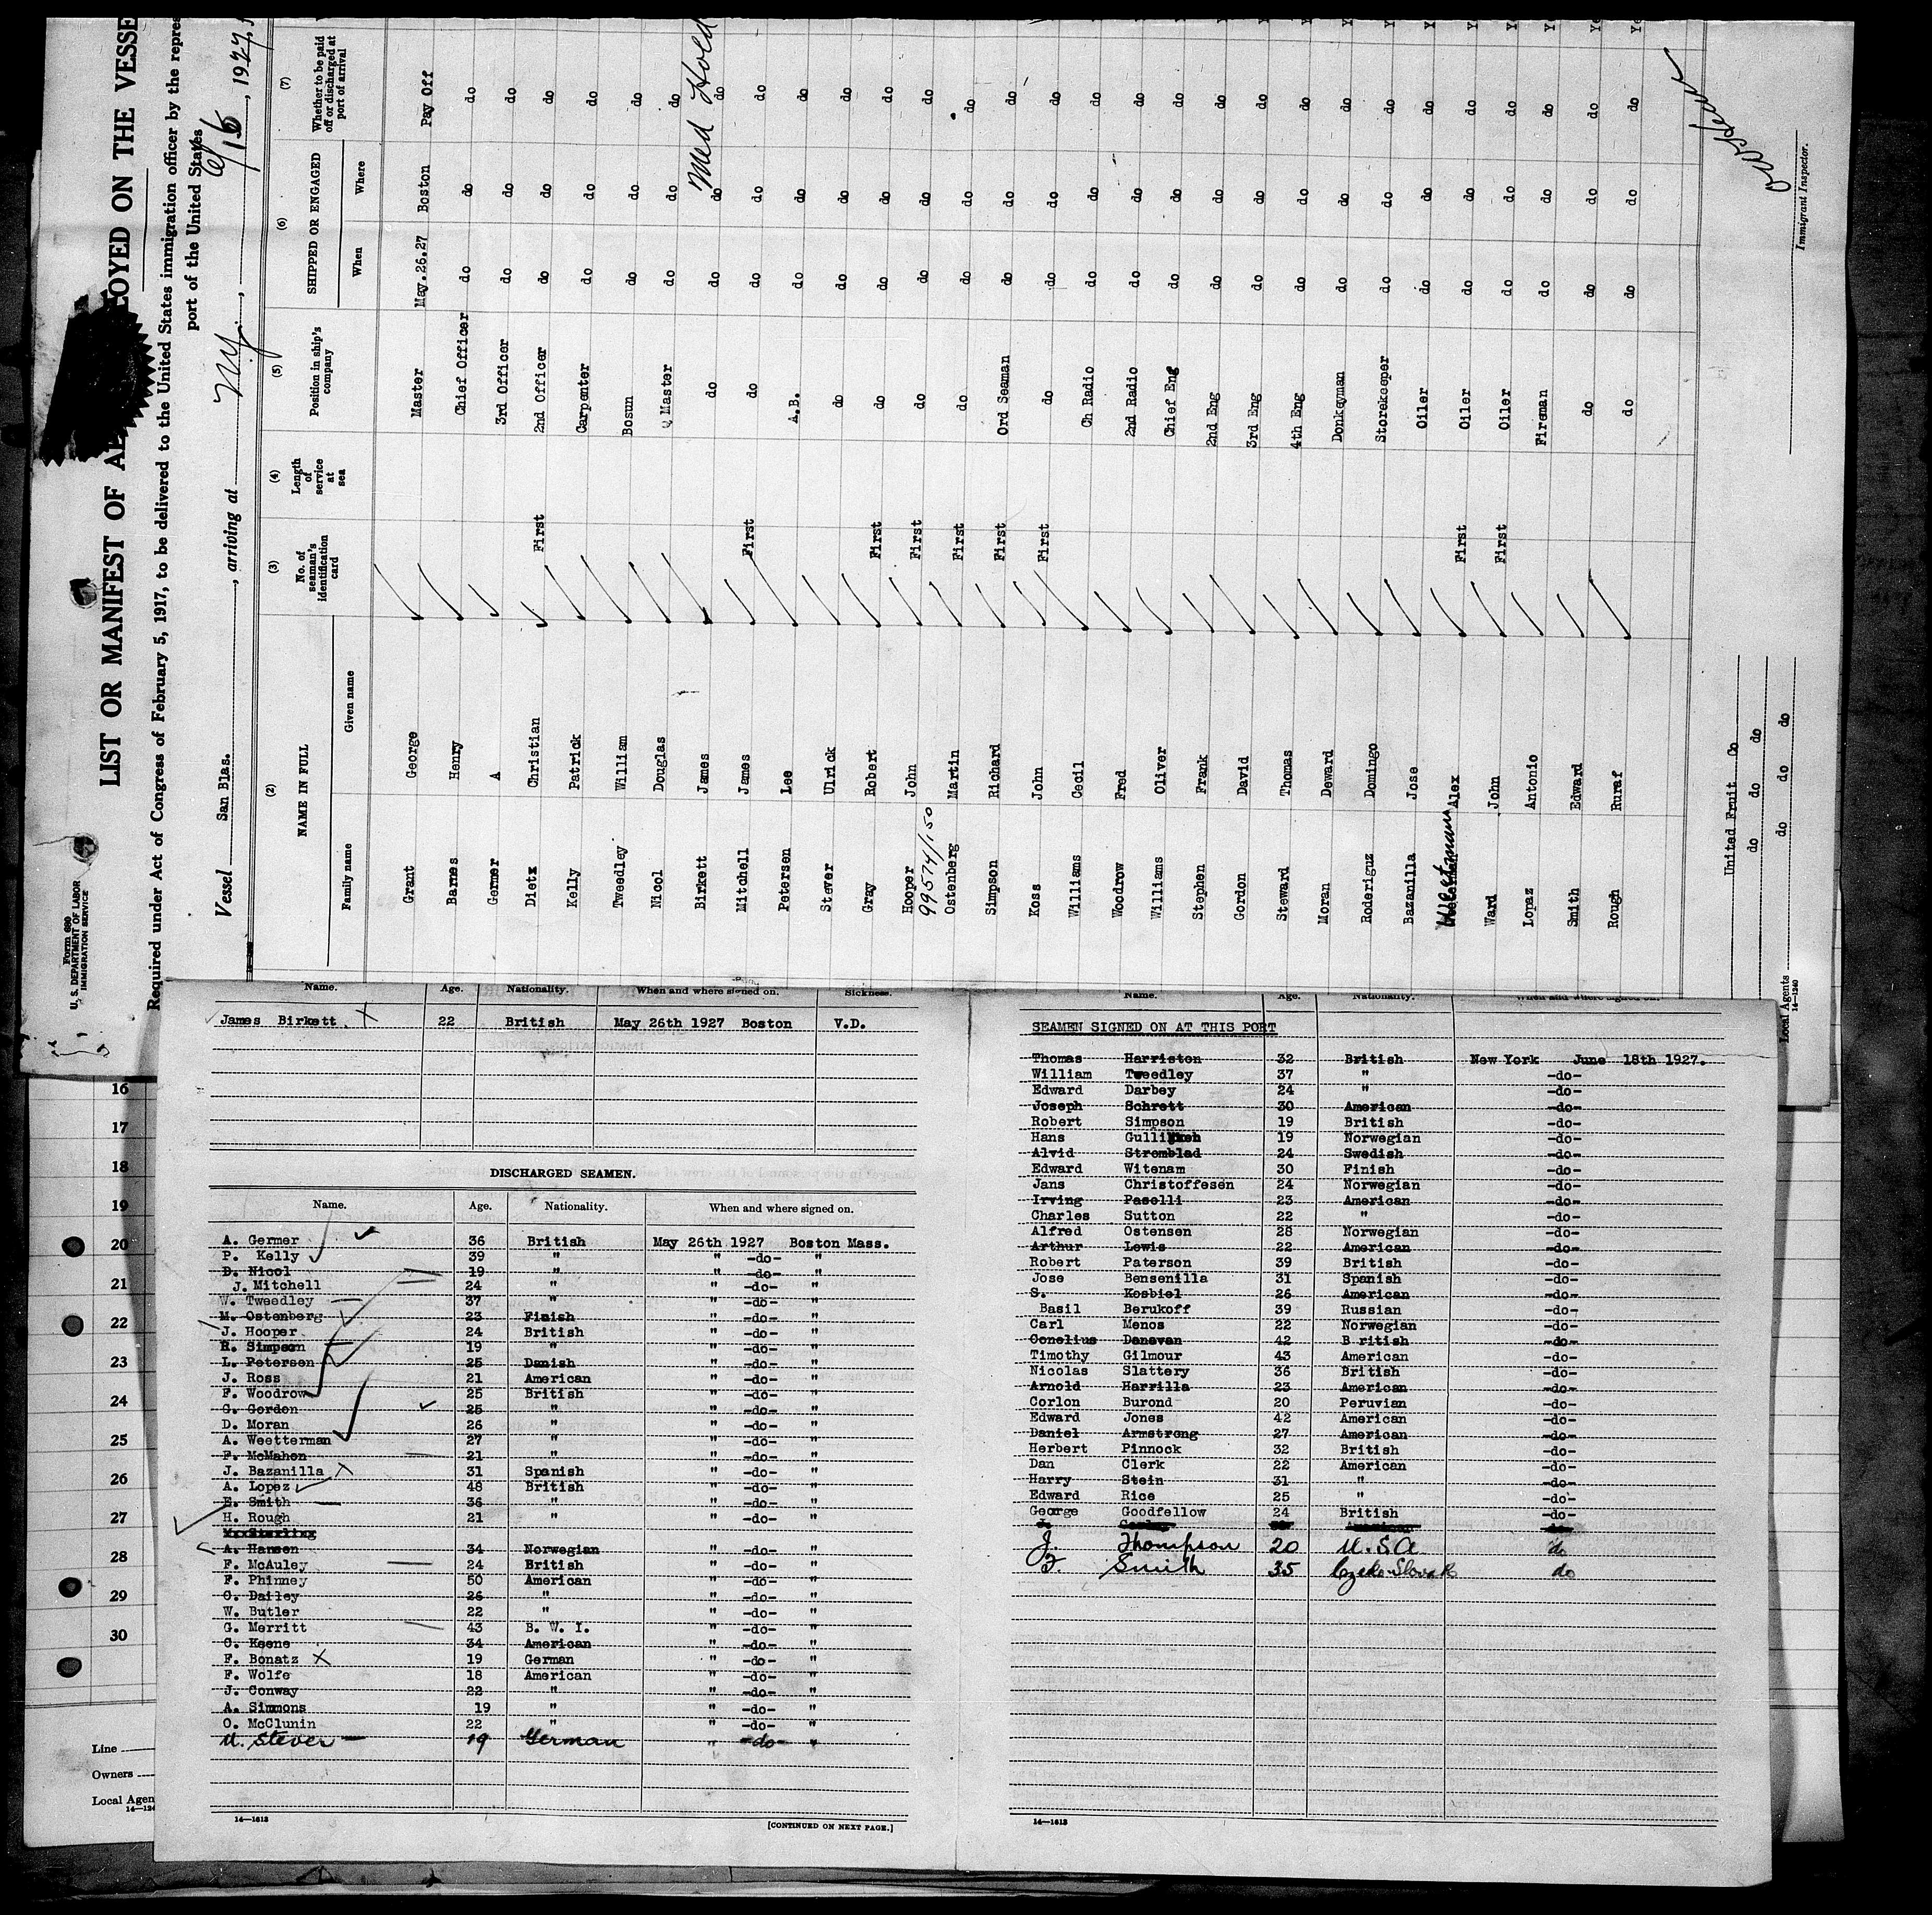 Form 680
U. S. DEPARTMENT OF LABOR
IMMIGRATION SERVICE
LIST OR MANIFEST OF OYED ON THE VESSE
Required under Act of Congress of February 5, 1917, to be delivered to the United States immigration officer by the repres
port of the United States
Vessel San Blas. , arriving at N.Y. , 6/16 , 1927,
(2) (3) (4) (5) (6) (7)
NAME IN FULL No. of seaman's identification card Length of service at sea Position in ship's company SHIPPED OR ENGAGED Whether to be paid off or discharged at port of arrival
Family name Given name When Where
Grant George Master May.26.27 Boston Pay Off
Barnes Henry Chief Officer do do do
Germer A 3rd Officer do do do
Dietz Christian First 2nd Officer do do do
Kelly Patrick Carpenter do do do
Tweedley William Bosun do do do
Nicol Douglas Q Master do do do
Birkett James do do do do Med Hold
Mitchell James First do do do do
Petersen Lee A.B. do do do
Stever Ulrick do do do do
Gray Robert First do do do do
Hooper John First do do do do
99574/150
Ostenberg Martin First do do do do
Simpson Richard First Ord Seaman do do do
Koss John First do do do do
Williams Cecil Ch Radio do do do
Woodrow Fred 2nd Radio do do do
Williams Oliver Chief Eng do do do
Stephen Frank 2nd Eng do do do
Gordon David 3rd Eng do do do
Steward Thomas 4th Eng do do do
Moran Deward Donkeyman do do do
Roderiguz Domingo Storekeeper do do do
Bazanilla Jose Oiler do do do
Weetman Alex First Oiler do do do
Ward John First Oiler do do do
Lopaz Antonio Fireman do do do
Smith Edward do do do do
Rough Ruraf do do do do
Immigrant Inspector.
United Fruit Co
do do do
do do do
Local Agents
14—1240
16
17
18
19
20
21
22
23
24
25
26
27
28
29
30
Line
Owners
Local Agen
14—124
Name. Age. Nationality. When and where signed on. Sickness.
James Birkett. X 22 British May 26th 1927 Boston V.D.
DISCHARGED SEAMEN.
Name. Age. Nationality. When and where signed on.
A. Germer 36 British May 26th 1927 Boston Mass.
P. Kelly 39 " " -do- "
D. Nicol 19 " " -do- "
J. Mitchell 24 " " -do- "
W. Tweedley 37 " " -do- "
M. Ostenberg 23 Finish " -do- "
J. Hooper 24 British " -do- "
R. Simpson 19 " " -do- "
L. Petersen 25 Danish " -do- "
J. Ross 21 American " -do- "
F. Woodrow 25 British " -do- "
G. Gordon 25 " " -do- "
D. Moran 26 " " -do- "
A. Weetterman 27 " " -do- "
F. McMahon 21 " " -do- "
J. Bazanilla X 31 Spanish " -do- "
A. Lopez 48 British " -do- "
E. Smith 36 " " -do- "
H. Rough 21 " " -do- "
A. Hansen 34 Norwegian " -do- "
F. McAuley 24 British " -do- "
F. Phinney 50 American " -do- "
C. Dailey 26 " " -do- "
W. Butler 22 " " -do- "
G. Merritt 43 B. W. I. " -do- "
C. Keene 34 American " -do- "
F. Bonatz X 19 German " -do- "
F. Wolfe 18 American " -do- "
J. Conway 22 " " -do- "
A. Simmons 19 " " -do- "
O. McClunin 22 " " -do- "
U. Stever 19 German " -do- "
14—1613
[CONTINUED ON NEXT PAGE.]
Name. Age. Nationality. When and where signed on.
SEAMEN SIGNED ON AT THIS PORT
Thomas Harriston 32 British New York June 18th 1927.
William Tweedley 37 " -do-
Edward Darbey 24 " -do-
Joseph Schrett 30 American -do-
Robert Simpson 19 British -do-
Hans 19 Norwegian -do-
Alvid Stromblad 24 Swedish -do-
Edward Witenam 30 Finish -do-
Jans Christoffesen 24 Norwegian -do-
Irving Paselli 23 American -do-
Charles Sutton 22 " -do-
Alfred Ostensen 28 Norwegian -do-
Arthur Lewis 22 American -do-
Robert Paterson 39 British -do-
Jose Bensenilla 31 Spanish -do-
S. Kosbiel 26 American -do-
Basil Berukoff 39 Russian -do-
Carl Menos 22 Norwegian -do-
Conelius Donavan 42 B ritish -do-
Timothy Gilmour 43 American -do-
Nicolas Slattery 36 British -do-
Arnold Harrilla 23 American -do-
Corlon Burond 20 Peruvian -do-
Edward Jones 42 American -do-
Daniel Armstrong 27 American -do-
Herbert Pinnock 32 British -do-
Dan Clerk 22 American -do-
Harry Stein 31 " -do-
Edward Rice 25 " -do-
George Goodfellow 24 British -do-
J. Thompson 20 U.S.A do
F. Smith 35 Czecko-Slovak do
14—1613